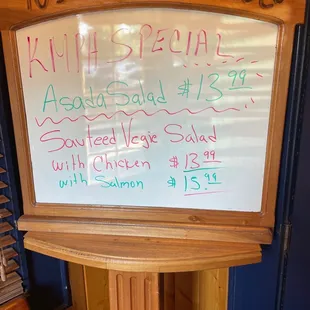 KMPH SPECIAL
Asada Salad $13.99
Sauteed Vegie Salad
with Chicken $13.99
with Salmon $15.99